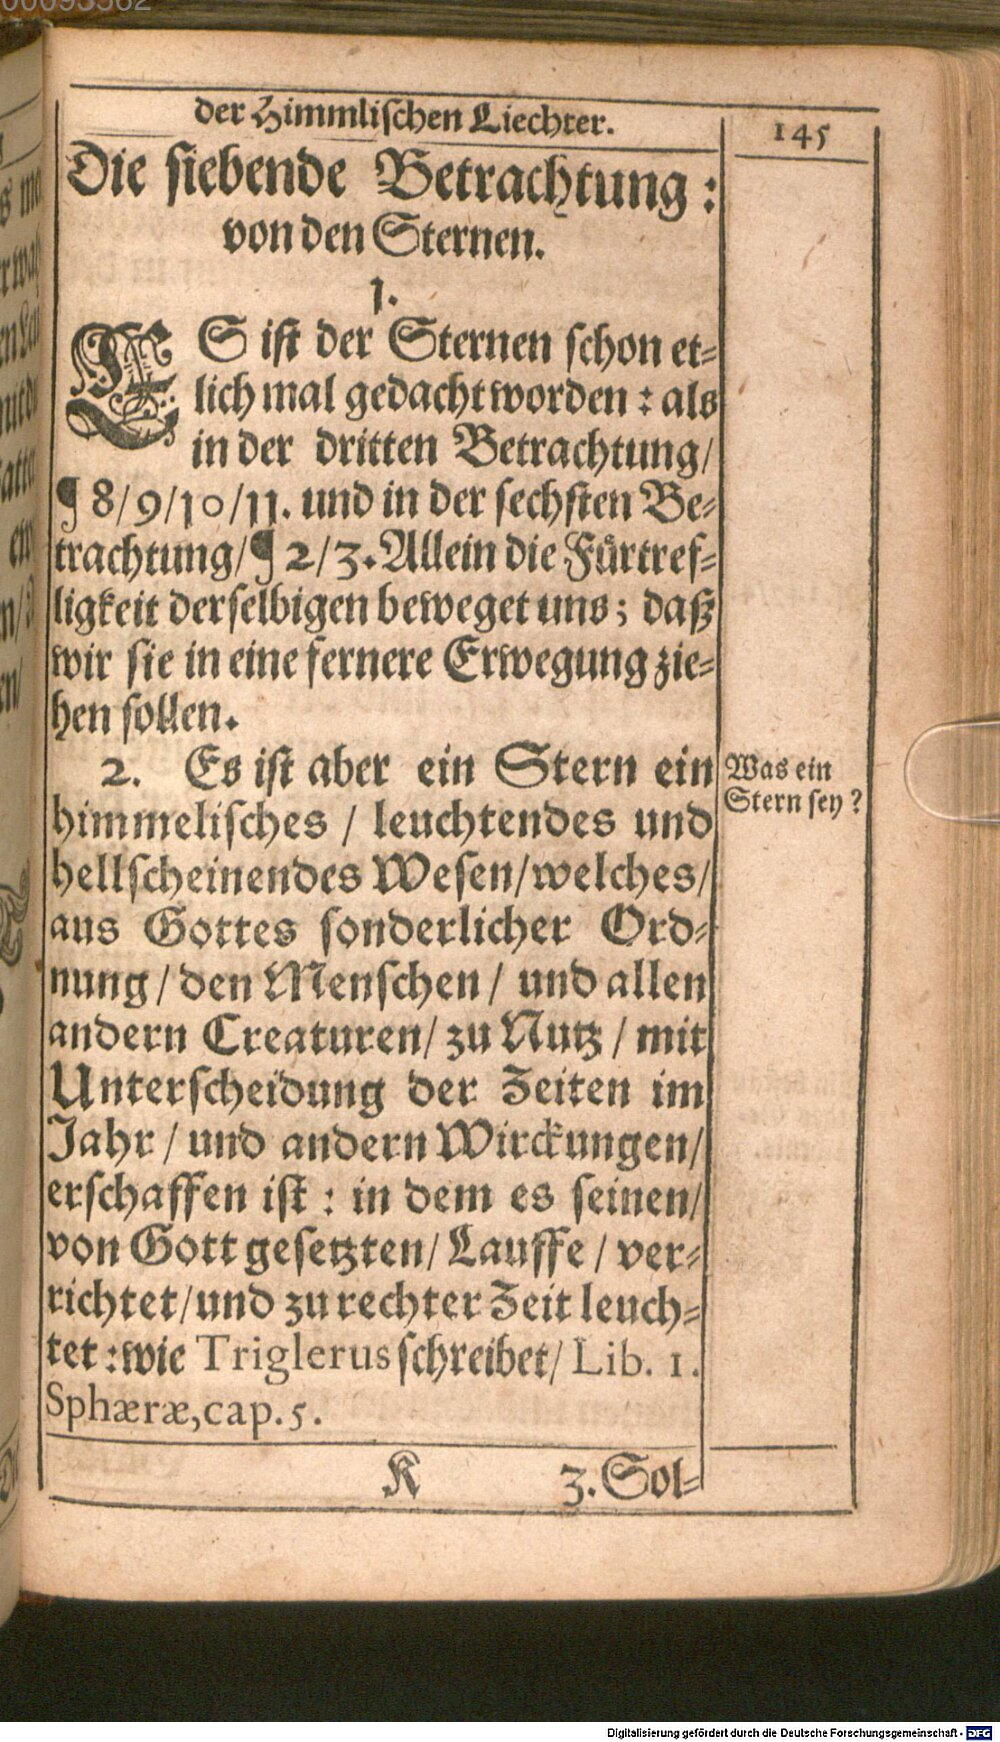 der Himmlischen Liechter.
145
Die siebende Betrachtung:
von den Sternen.
1.
ES ist der Sternen schon et-
lich mal gedacht worden: als
in der dritten Betrachtung/
¶ 8/9/10/11. und in der sechsten Be-
trachtung/ ¶ 2/3. Allein die Fürtref-
ligkeit derselbigen beweget uns; daß
wir sie in eine fernere Erwegung zie-
hen sollen.
2. Es ist aber ein Stern ein
himmelisches / leuchtendes und
hellscheinendes Wesen/welches/
aus Gottes sonderlicher Ord-
nung/ den Menschen/ und allen
andern Creaturen/ zu Nutz / mit
Unterscheidung der Zeiten im
Jahr / und andern Wirckungen/
erschaffen ist: in dem es seinen/
von Gott gesetzten/ Lauffe / ver-
richtet/und zu rechter Zeit leuch-
tet: wie Triglerus schreibet/ Lib. 1.
Sphæræ, cap. 5.
Was ein
Stern sey?
K 3. Sol-
Digitalisierung gefördert durch die Deutsche Forschungsgemeinschaft - DFG